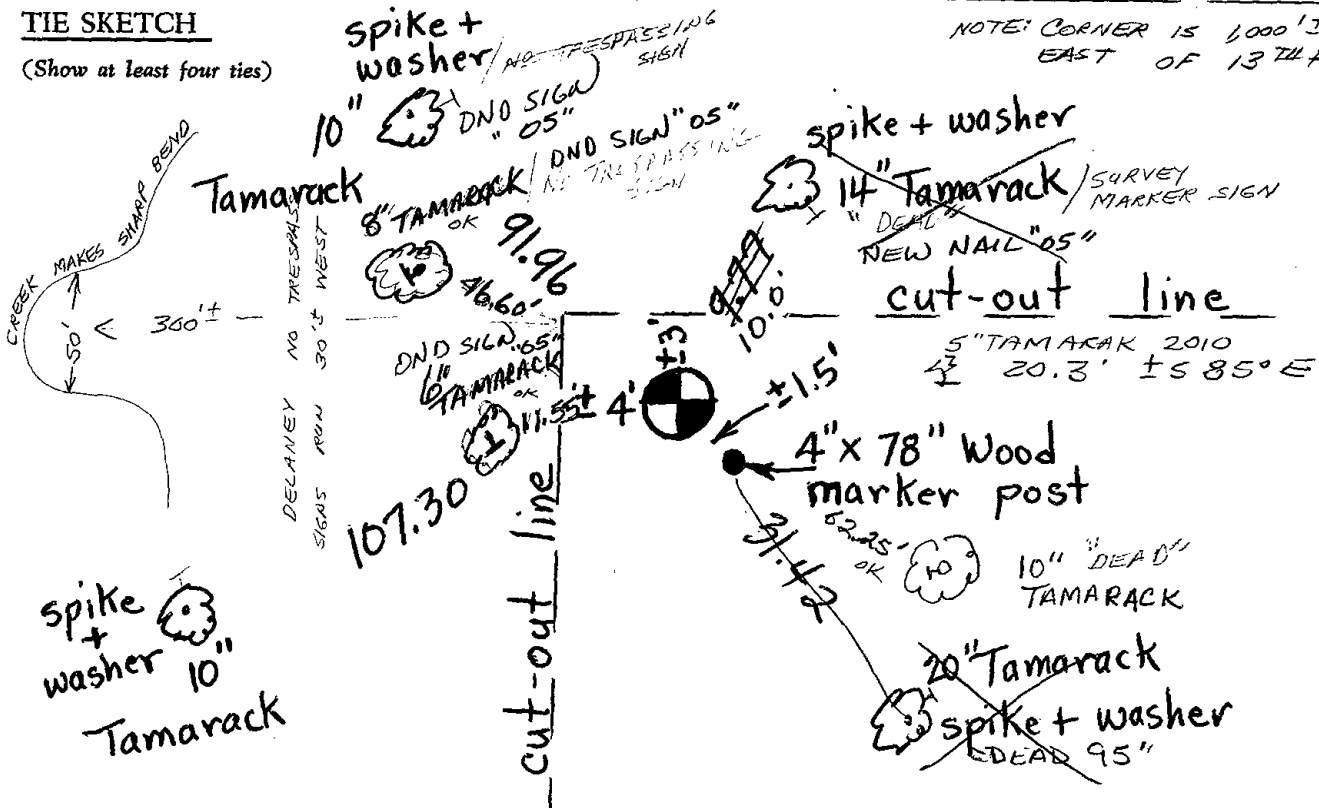 TIE SKETCH
(Show at least four ties)
NOTE: CORNER IS 1,000'
EAST OF 13TH
spike +
washer / NO TRESPASSING
SIGN
10"
DND SIGN
"05"
Tamarack
8" TAMARACK / DND SIGN "05"
OK
NO TRESPASSING
SIGN
91.96
46.60
spike + washer
14" Tamarack / SURVEY
MARKER SIGN
"DEAD"
NEW NAIL "05"
9.77
10.0'
cut-out line
5" TAMARAK 2010
20.3' ± S 85° E
CREEK MAKES SHARP BEND
50'
300'±
DELANEY NO TRESPASS
SIGNS RUN 30'± WEST
DND SIGN "05"
6"
TAMARACK
OK
11.55'
± 4'
±3'
±1.5'
107.30
4" X 78" Wood
marker post
62.25'
OK
31.42
10" "DEAD"
TAMARACK
cut-out line
spike
+
washer 10"
Tamarack
20" Tamarack
spike + washer
DEAD 95"